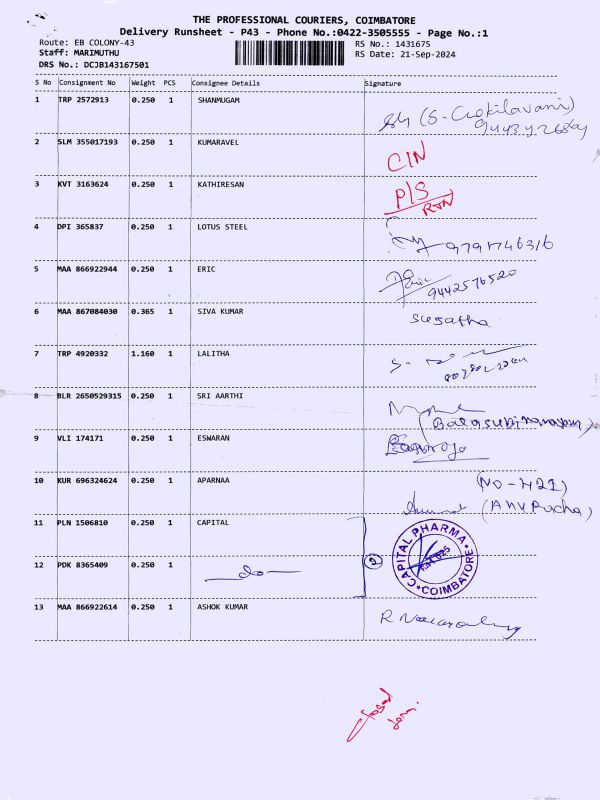 THE PROFESSIONAL COURIERS, COIMBATORE
Delivery Runsheet - P43 - Phone No.:0422-3505555 - Page No.:1
Route: EB COLONY-43
RS No.: 1431675
Staff: MARIMUTHU
RS Date: 21-Sep-2024
DRS No.: DCJB143167501
S No Consignment No Weight PCS Consignee Details Signature
1 TRP 2572913 0.250 1 SHANMUGAM
(S. Gokilavani)
2 SLM 355017193 0.250 1 KUMARAVEL
C/N
3 KVT 3163624 0.250 1 KATHIRESAN
P/S
RTN
4 DPI 365837 0.250 1 LOTUS STEEL
9791746316
5 MAA 866922944 0.250 1 ERIC
9442576520
6 MAA 867084030 0.365 1 SIVA KUMAR
Sujatha
7 TRP 4920332 1.160 1 LALITHA
8 BLR 2650529315 0.250 1 SRI AARTHI
(Balasubramaniyam)
9 VLI 174171 0.250 1 ESWARAN
10 KUR 696324624 0.250 1 APARNAA
(NO-422)
(ANURadha)
11 PLN 1506810 0.250 1 CAPITAL
12 PDK 8365409 0.250 1 do
2
CAPITAL PHARMA
COIMBATORE
13 MAA 866922614 0.250 1 ASHOK KUMAR